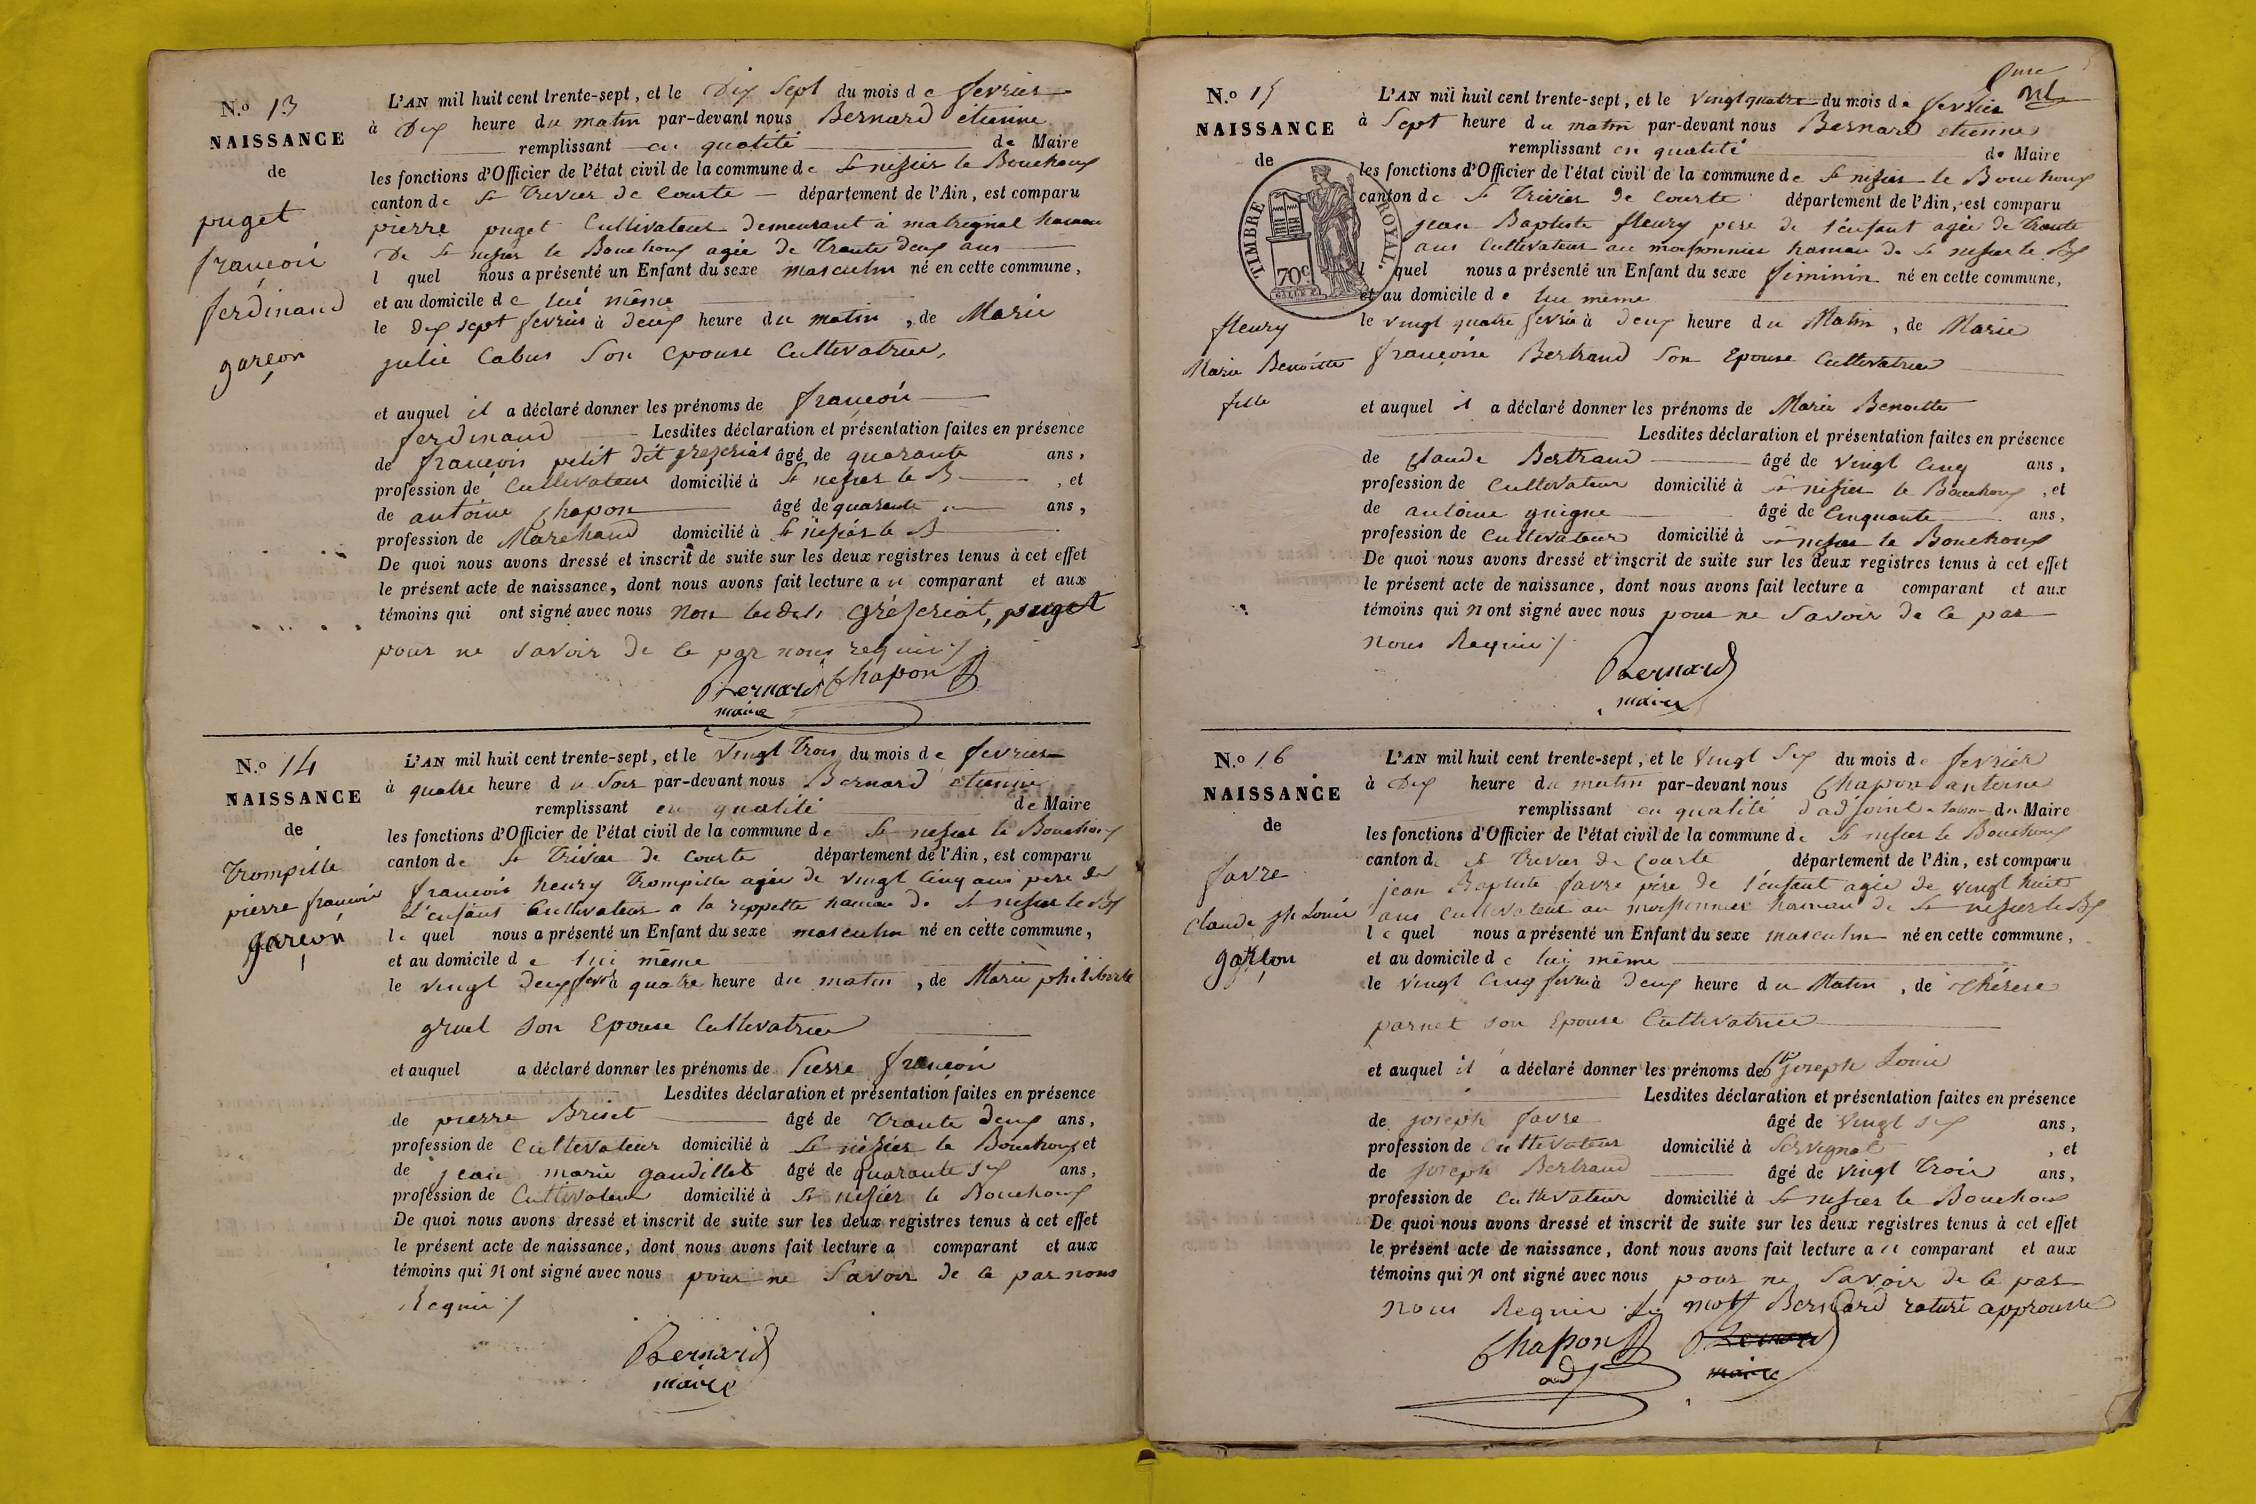 N.o 13
NAISSANCE
de
puget
françois
ferdinand
garçon
L'AN mil huit cent trente-sept, et le Dix Sept du mois de fevrier
à Dix heure du matin par-devant nous Bernard étienne
remplissant en qualité de Maire
les fonctions d'Officier de l'état civil de la commune de St nisier le Bouchoux
canton de St Trivier de Courte département de l'Ain, est comparu
pierre puget Cultivateur demeurant à matregnal hameau
De St nisier le Bouchoux agée de Trante deux ans
l quel nous a présenté un Enfant du sexe masculin né en cette commune,
et au domicile de lui même
le dix sept fevrier à deux heure du matin, de Marie
julie Cabus Son epouse Cultivatrice,
et auquel il a déclaré donner les prénoms de françois
ferdinand Lesdites déclaration et présentation faites en présence
de françois petit dit gréfériat âgé de quarante ans,
profession de Cultivateur domicilié à St nisier le B , et
de antoine Chapon âgé de quarante ans,
profession de Marchand domicilié à St nisier le B
De quoi nous avons dressé et inscrit de suite sur les deux registres tenus à cet effet
le présent acte de naissance, dont nous avons fait lecture au comparant et aux
témoins qui ont signé avec nous non puget
pour ne savoir de ce par nous requis /.
Bernard Chapon
maire
N.o 14
NAISSANCE
de
Trompille
pierre françois
garçon
L'AN mil huit cent trente-sept, et le Vingt Trois du mois de fevrier
à quatre heure du Soir par-devant nous Bernard etienne
remplissant en qualité de Maire
les fonctions d'Officier de l'état civil de la commune de St nisier le Bouchoux
canton de St Trivier de Courte département de l'Ain, est comparu
françois henry Trompille agée de vingt Cinq ans pere de
L'enfant Cultivateur a la rippette hameau de St nisier le Bx
le quel nous a présenté un Enfant du sexe masculin né en cette commune,
et au domicile de lui même
le vingt deux fevr à quatre heure du matin, de Marie philiberte
gruel Son Epouse Cultivatrice
et auquel a déclaré donner les prénoms de Pierre françois
Lesdites déclaration et présentation faites en présence
de pierre Briset âgé de Trante deux ans,
profession de Cultivateur domicilié à St nisier le Bouchoux et
de jean marie gaudillet âgé de quarante six ans,
profession de Cultivateur domicilié à St nisier le Bouchoux
De quoi nous avons dressé et inscrit de suite sur les deux registres tenus à cet effet
le présent acte de naissance, dont nous avons fait lecture a comparant et aux
témoins qui n ont signé avec nous pour ne Savoir de ce par nous
Requis /.
Bernard
maire
N.o 15
NAISSANCE
de
TIMBRE ROYAL.
70c
fleury
Marie Benoitte
fille
L'AN mil huit cent trente-sept, et le vingt quatre du mois de fevrier
à Sept heure du matin par-devant nous Bernard etienne
remplissant en qualité de Maire
les fonctions d'Officier de l'état civil de la commune de St nisier le Bouchoux
canton de St Trivier de Courte département de l'Ain, est comparu
jean Baptiste fleury pere de l'enfant agée de Trante
ans Cultivateur au moissonnier hameau de St nisier le Bx
l quel nous a présenté un Enfant du sexe féminin né en cette commune,
et au domicile de lui même
le vingt quatre fevrier à deux heure du Matin, de Marie
françoise Bertrand Son Epouse Cultivatrice
et auquel il a déclaré donner les prénoms de Marie Benoitte
Lesdites déclaration et présentation faites en présence
de Claude Bertrand âgé de vingt Cinq ans,
profession de Cultivateur domicilié à St nisier le Bouchoux , et
de antoine guigne âgé de Cinquante ans,
profession de Cultivateur domicilié à St nisier le Bouchoux
De quoi nous avons dressé et inscrit de suite sur les deux registres tenus à cet effet
le présent acte de naissance, dont nous avons fait lecture a comparant et aux
témoins qui n ont signé avec nous pour ne Savoir de ce par
nous Requis /.
Bernard
maire
N.o 16
NAISSANCE
de
favre
Claude jh Louis
garçon
L'AN mil huit cent trente-sept, et le Vingt Six du mois de fevrier
à Dix heure du matin par-devant nous Chapon antoine
remplissant en qualité d'adjoint du Maire
les fonctions d'Officier de l'état civil de la commune de St nisier le Bouchoux
canton de St Trivier de Courte département de l'Ain, est comparu
jean Baptiste favre pére de l'enfant agée de vingt huit
ans Cultivateur au moissonnier hameau de St nisier le Bx
le quel nous a présenté un Enfant du sexe masculin né en cette commune,
et au domicile de lui même
le Vingt Cinq fevrier à deux heure du Matin, de thérese
parnet Son Epouse Cultivatrice
et auquel il a déclaré donner les prénoms de joseph Louis
Lesdites déclaration et présentation faites en présence
de joseph favre âgé de Vingt six ans,
profession de Cultivateur domicilié à Servignat , et
de joseph Bertrand âgé de vingt Trois ans,
profession de Cultivateur domicilié à St nisier le Bouchoux
De quoi nous avons dressé et inscrit de suite sur les deux registres tenus à cet effet
le présent acte de naissance, dont nous avons fait lecture au comparant et aux
témoins qui n ont signé avec nous pour ne Savoir de ce par
nous Requis Le mot Bernard raturé approuvé
Chapon Bernard
adj maire